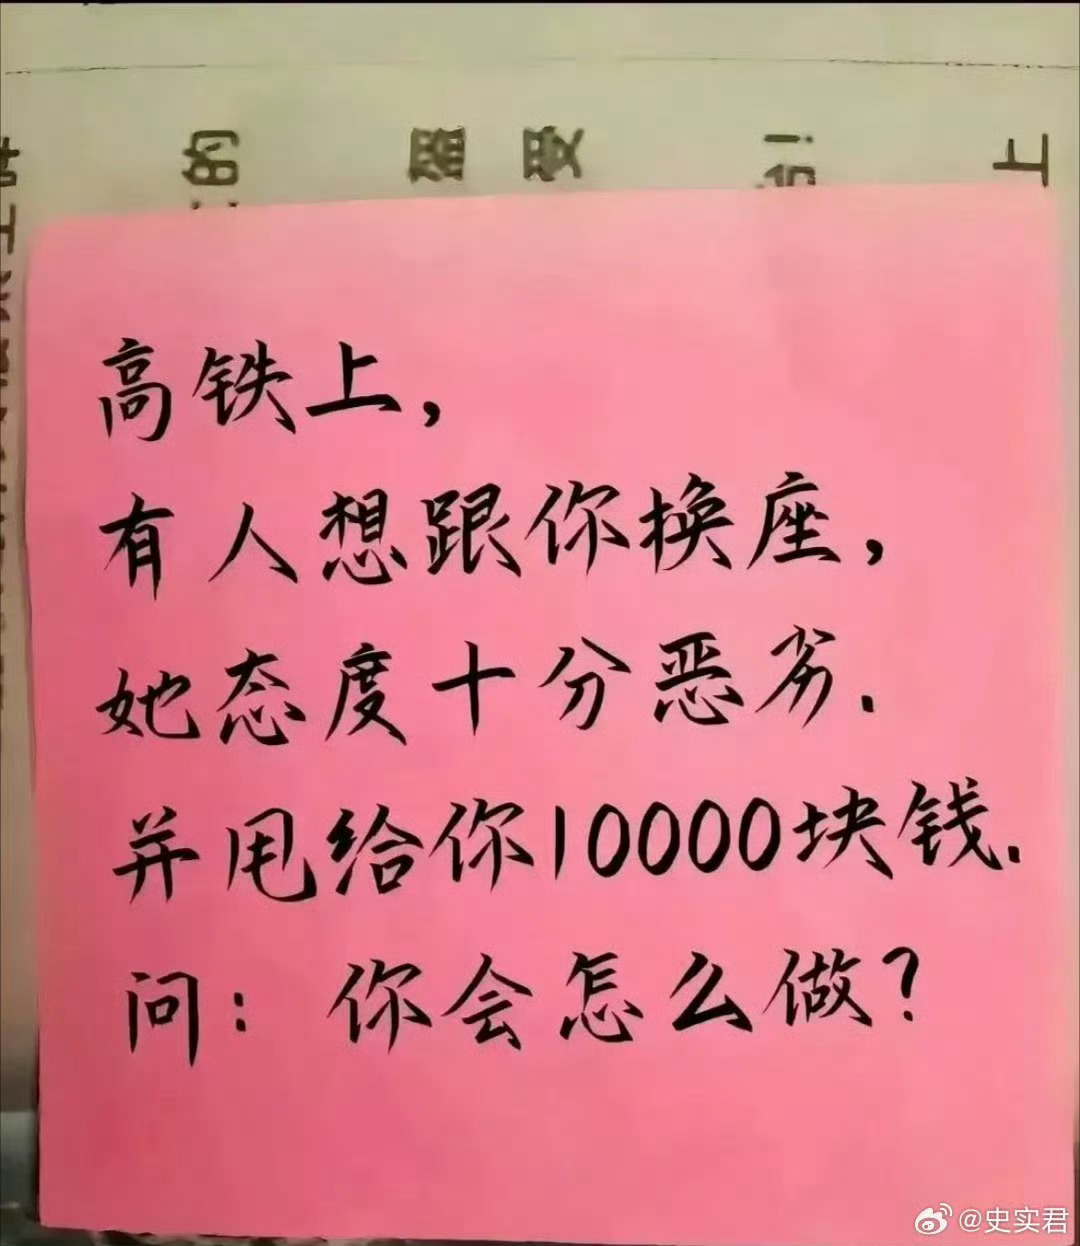 的
器
受
!
上
高铁上，
有人想跟你换座，
她态度十分恶劣.
并甩给你10000块钱.
问：你会怎么做？
@史实君